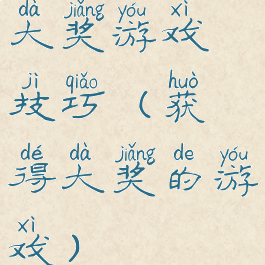 dà jiǎng yóu xì
大奖游戏
jì qiǎo huò
技巧（获
dé dà jiǎng de yóu
得大奖的游
xì
戏）